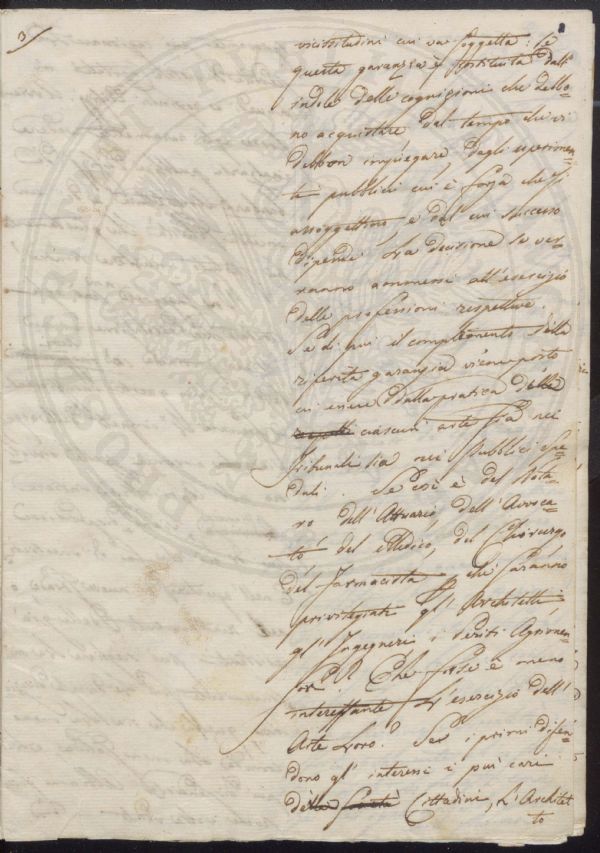 3
vicissitudini cui va soggetta: Se
questa garanzia è costituita dall'
indole delle cognizioni che debbo=
no acquistare, dal tempo che vi
debbon impiegare, dagli esperimen=
ti pubblici cui è forza che si
assoggettino, e dal cui successo
dipende la decisione se ver=
ranno ammessi all'esercizio
delle professioni respettive.
Se di più il complemento della
riferita garanzia vien riposto
in essere dalla pratica delle
ciascun arte sia nei
Tribunali sia nei pubblici Spe=
dali. Se così è del Nota=
ro dell'Attuario dell'Avvoca=
to del Medico, del Chirurgo
del Farmacista, che saranno
privilegiati gl'Architetti
gl'Ingegneri i Periti Agrimen=
sori? Che forse è meno
interessante l'esercizio dell'
Arte Loro? Se i primi difen=
dono gl'interessi i più cari
de Cittadini, l'Architet
to